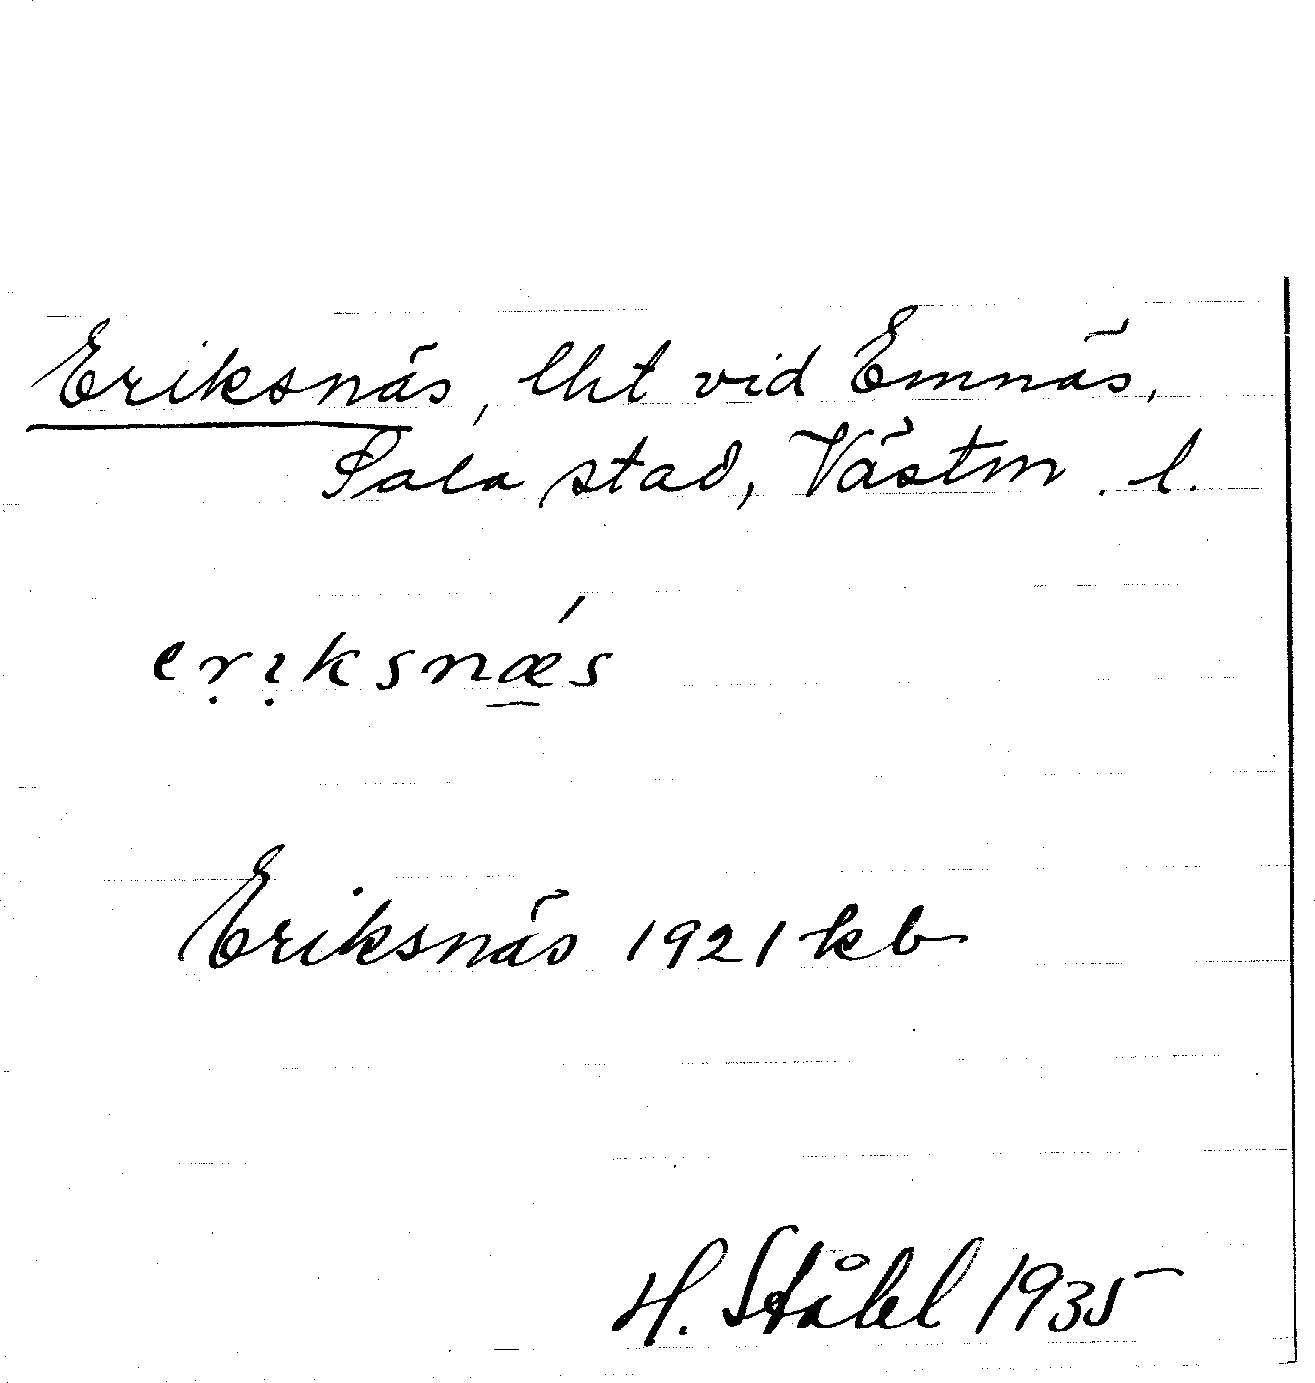 Eriksnäs, lht vid Emnäs,
Sala stad, Västm. l.
eṛịksnǽ̱s
Eriksnäs 1921 kb
H. Ståhl 1935